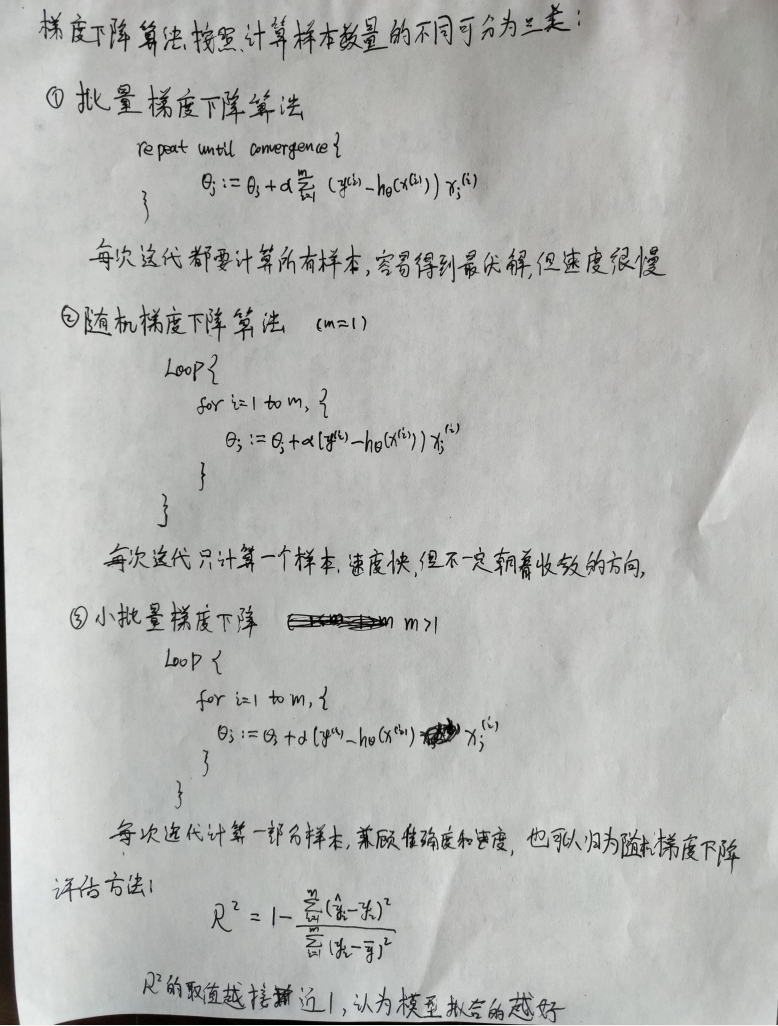 梯度下降算法按照计算样本数量的不同可分为三类:
① 批量梯度下降算法
repeat until convergence {
θj := θj + α Σ_{i=1}^{m} (y^(i) - hθ(x^(i))) xj^(i)
}
每次迭代都要计算所有样本,容易得到最优解,但速度很慢
② 随机梯度下降算法 (m=1)
Loop {
for i=1 to m, {
θj := θj + α (y^(i) - hθ(x^(i))) xj^(i)
}
}
每次迭代只计算一个样本,速度快,但不一定朝着收敛的方向,
③ 小批量梯度下降 m m>1
Loop {
for i=1 to m, {
θj := θj + α (y^(i) - hθ(x^(i)) xj^(i)
}
}
每次迭代计算一部分样本,兼顾准确度和速度,也可以归为随机梯度下降
评估方法:
R² = 1 - Σ_{i=1}^{m} (ŷi - yi)² / Σ_{i=1}^{m} (yi - ȳ)²
R²的取值越接近1,认为模型拟合的越好